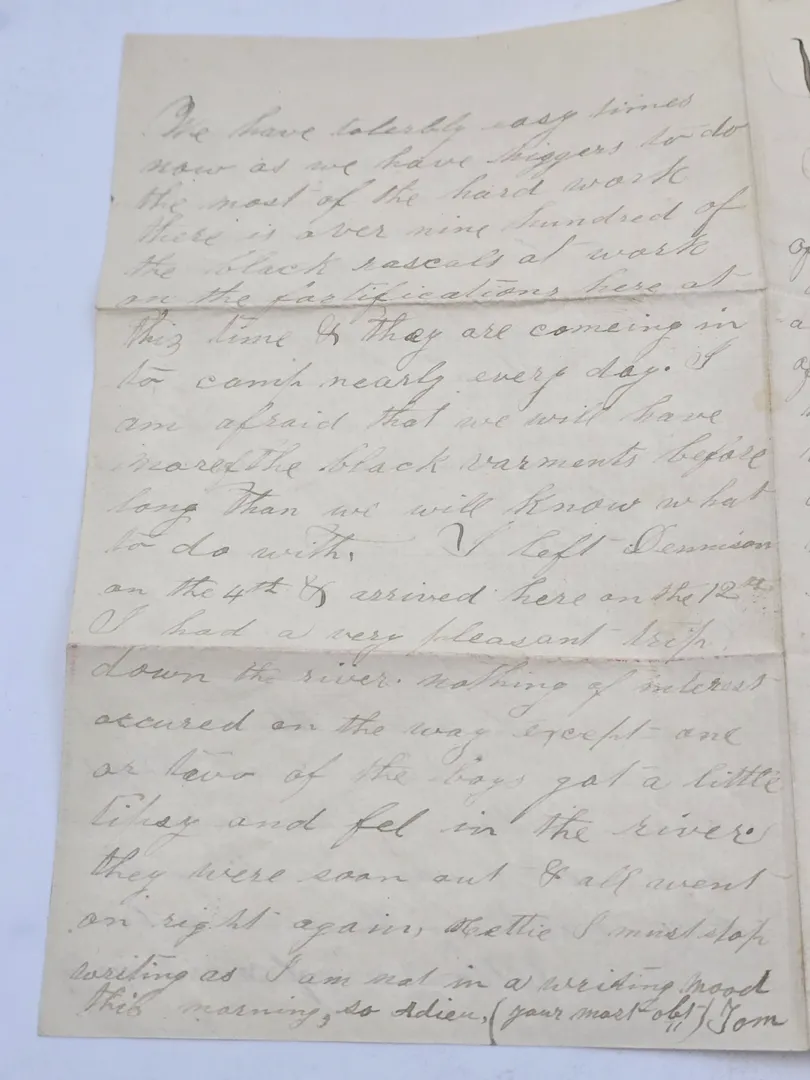 We have tolerbly easy times
now as we have niggers to do
the most of the hard work
there is over nine hundred of
the black rascals at work
on the fortifications here at
this time & they are comeing in
to camp nearly every day. I
am afraid that we will have
more of the black varments before
long than we will know what
to do with. I left Dennison
on the 4th & arrived here on the 12th
I had a very pleasant trip
down the river. nothing of interest
occured on the way except one
or two of the boys got a little
tipsy and fel in the river.
they were soon out & all went
on right again, Nettie I must stop
writing as I am not in a writing mood
this morning, so Adieu, (your most obt) Tom